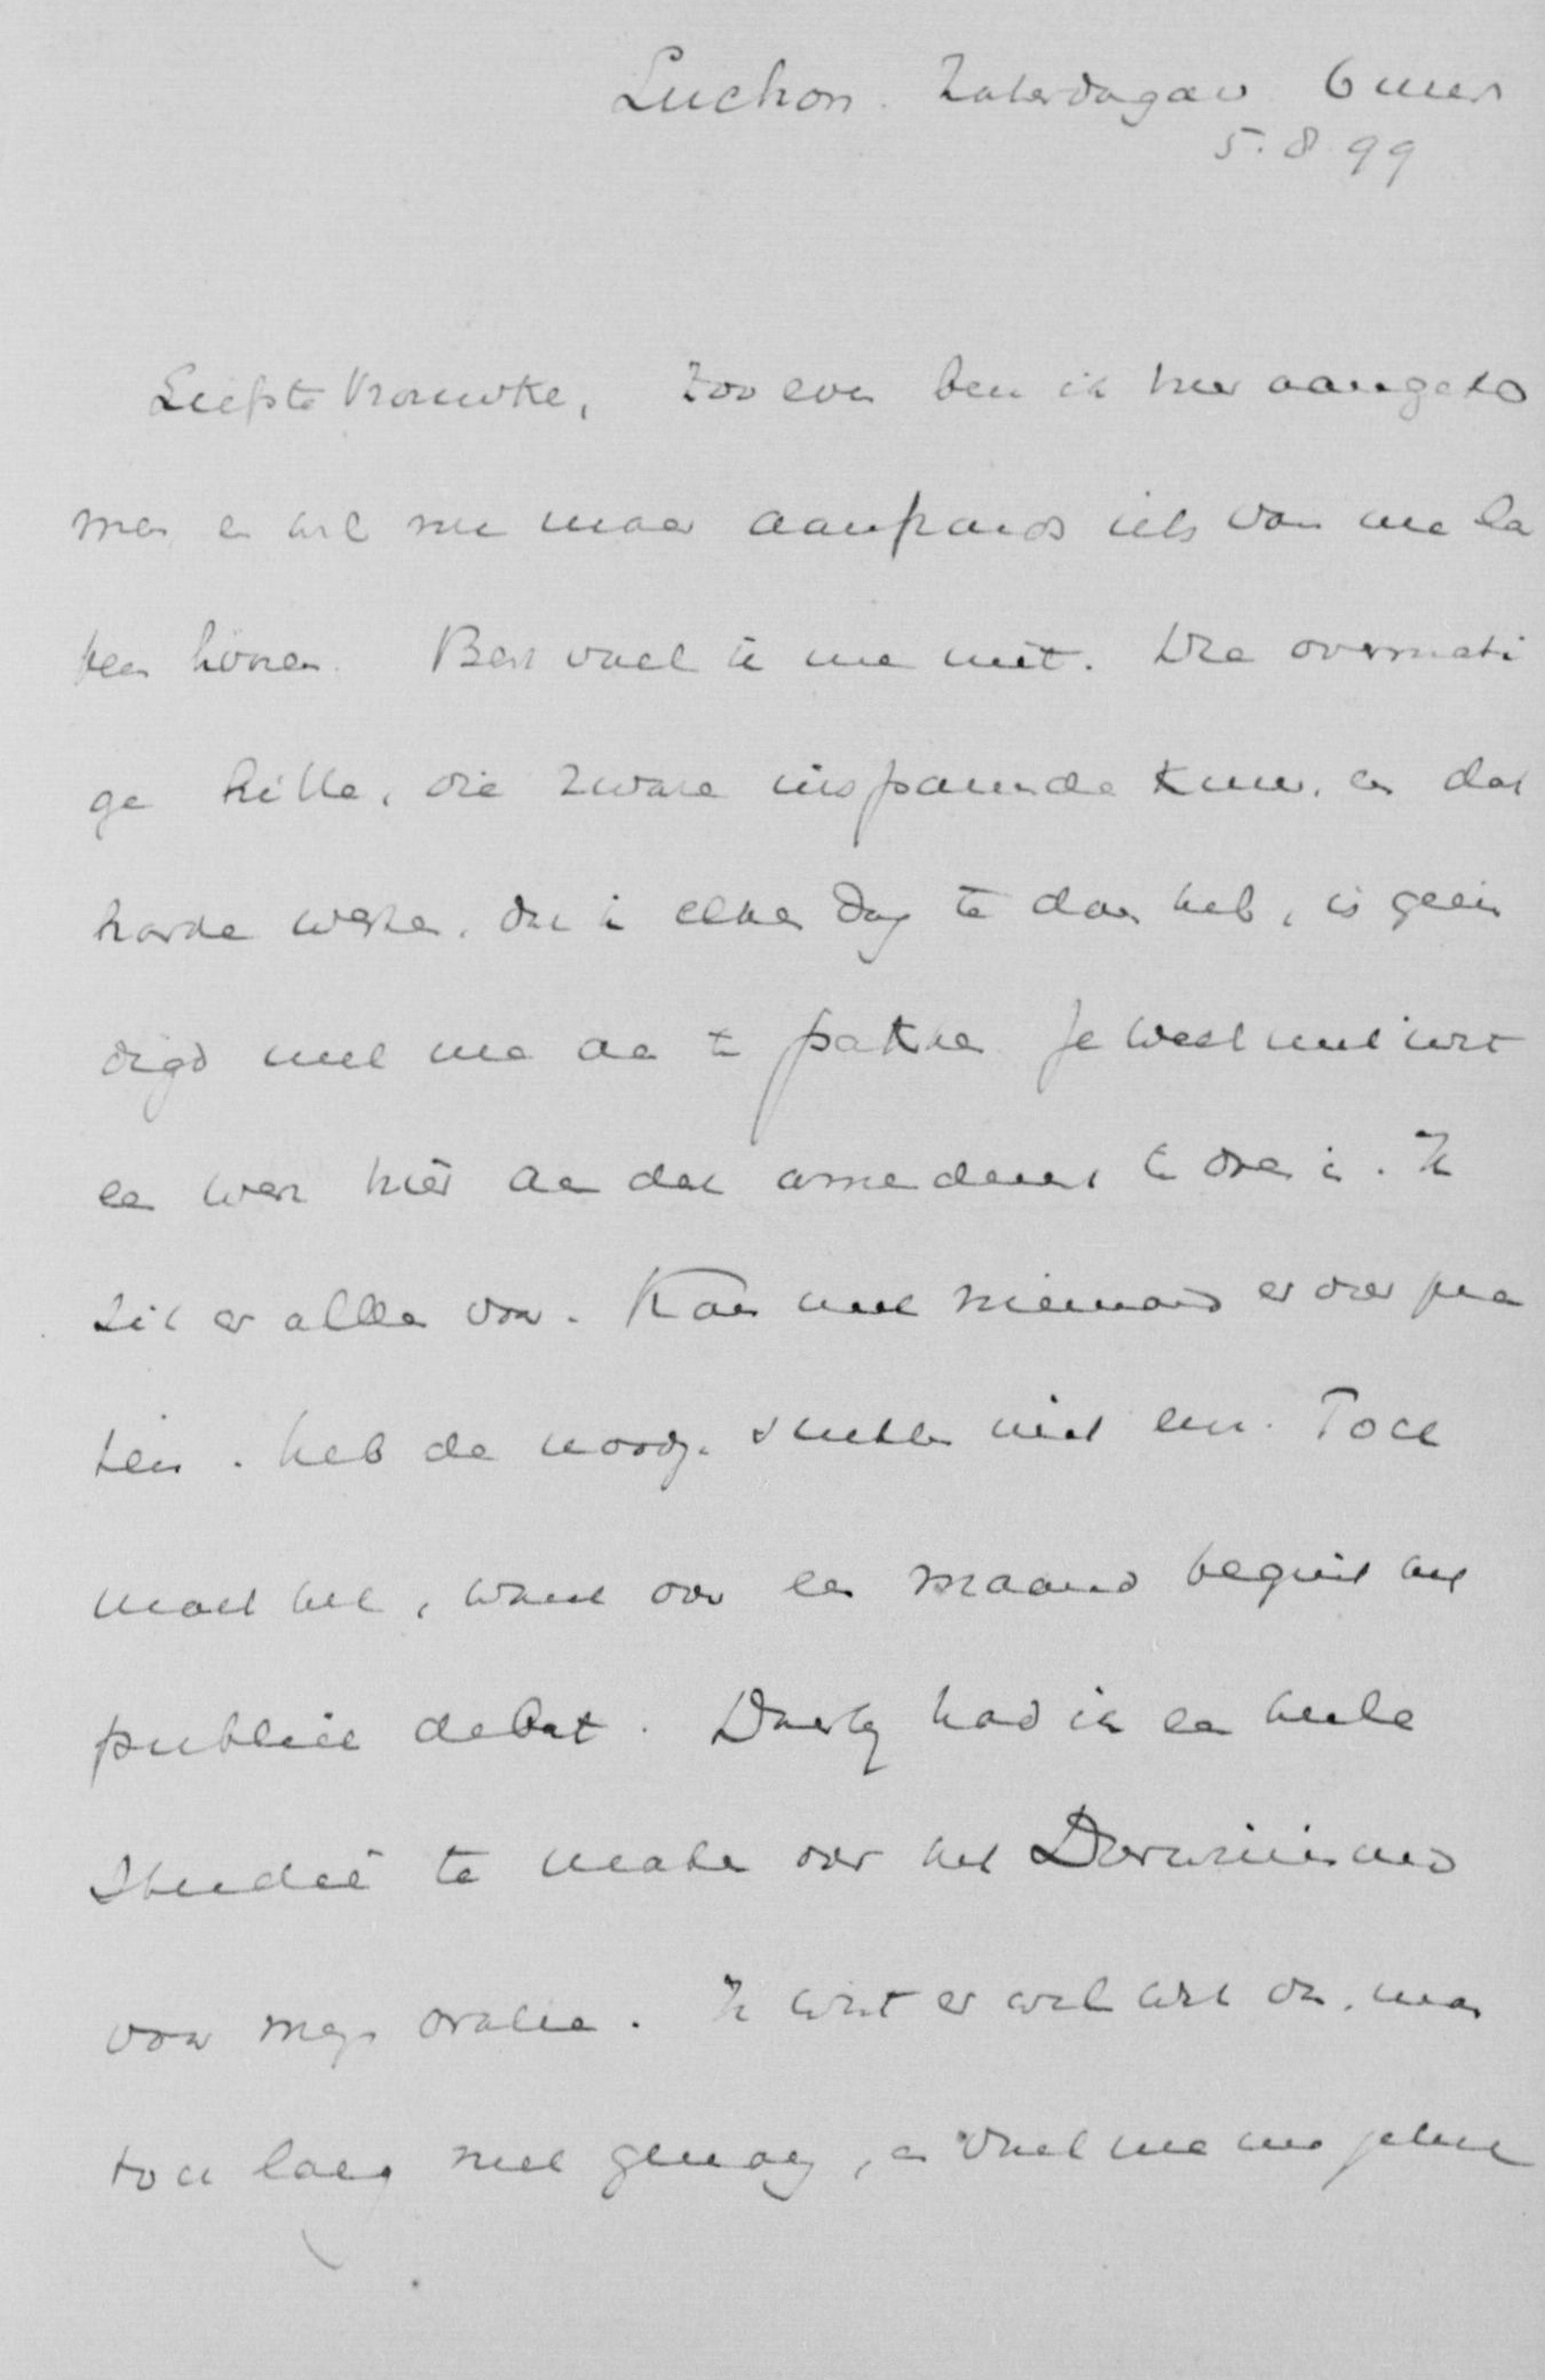 Luchon. Zaterdagav 6 uur
5.8.99
Liefste Vrouwke, Zoo even ben ik hier aangeko
men en wil nu maar aanstonds iets van me la
ten hooren. Best voel ik me niet. Die overmati
ge hitte, die zware inspannende kuur, en dat
harde werken, dat ik elken dag te doen heb, is geëin
digd met me aan te pakken. Je weet niet wat
een werk hier aan dat amendement te doen is. Ik
zit er alleen voor. Kan met niemand er over pra
ten. heb de noodige stukken niet hier. Toch
moet het, want over een maand begint het
publiek debat. Daarbij had ik een heele
studie te maken over het Darwinisme
voor mijn oratie. Ik wist er wel wat van, maar
toch lang niet genoeg, en voel me nu